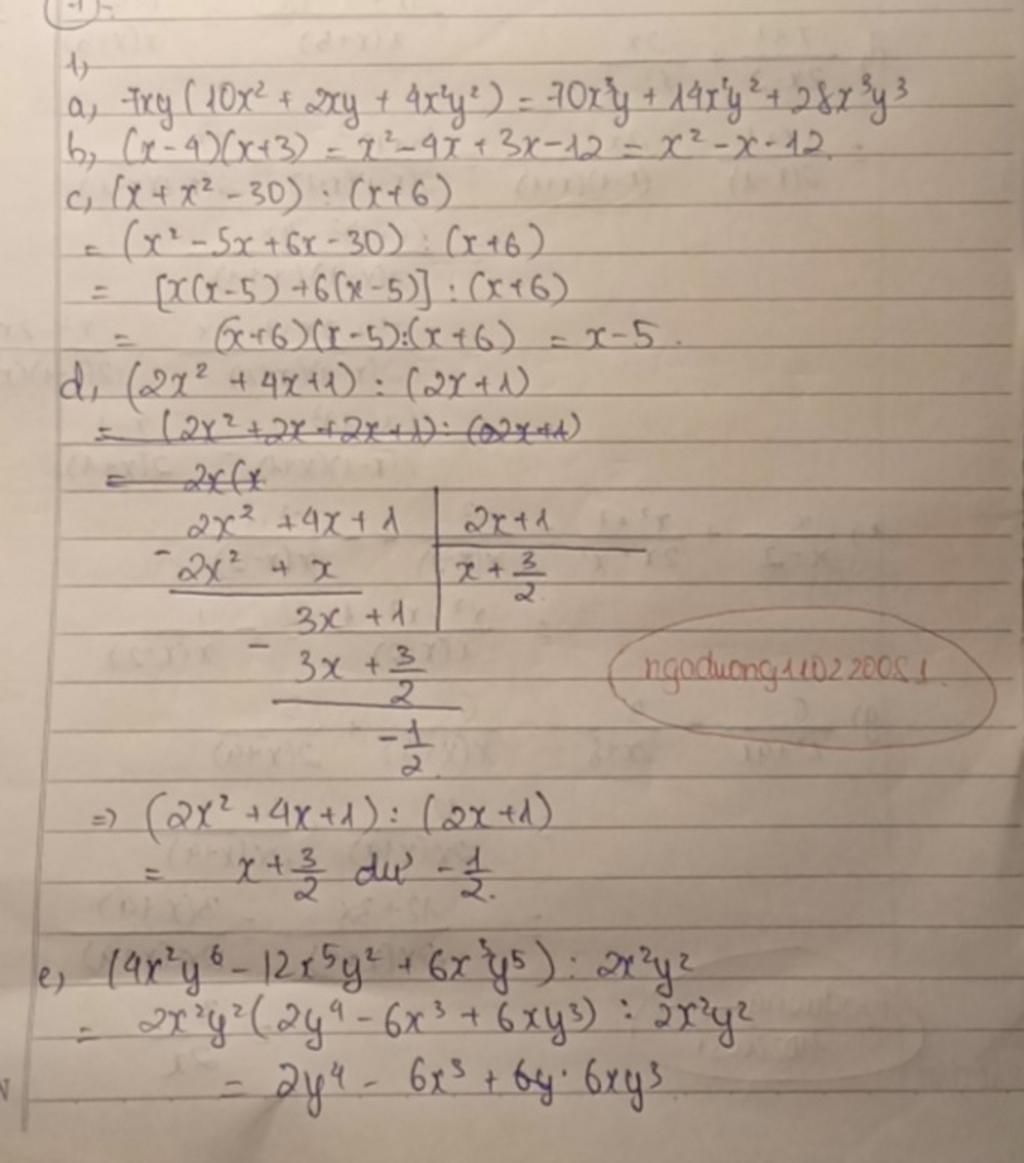 1,
a, 7xy(10x² + 2xy + 4x²y²) = 70x³y + 14x²y² + 28x³y³
b, (x-4)(x+3) = x² - 4x + 3x - 12 = x² - x - 12.
c, (x + x² - 30) : (x+6)
= (x² - 5x + 6x - 30) : (x+6)
= [x(x-5) + 6(x-5)] : (x+6)
= (x+6)(x-5):(x+6) = x-5.
d, (2x² + 4x+1) : (2x+1)
= (2x² + 2x + 2x + 1) : (2x+1)
= 2x(x
2x² + 4x + 1 | 2x+1
- 2x² + x | x + 3/2
3x + 1
- 3x + 3/2
-1/2
ngoduong110220081.
=> (2x² + 4x+1) : (2x+1)
= x + 3/2 dư -1/2.
e, (4x²y⁶ - 12x⁵y² + 6x³y⁵) : 2x²y²
= 2x²y²(2y⁴ - 6x³ + 6xy³) : 2x²y²
= 2y⁴ - 6x³ + 6y. 6xy³